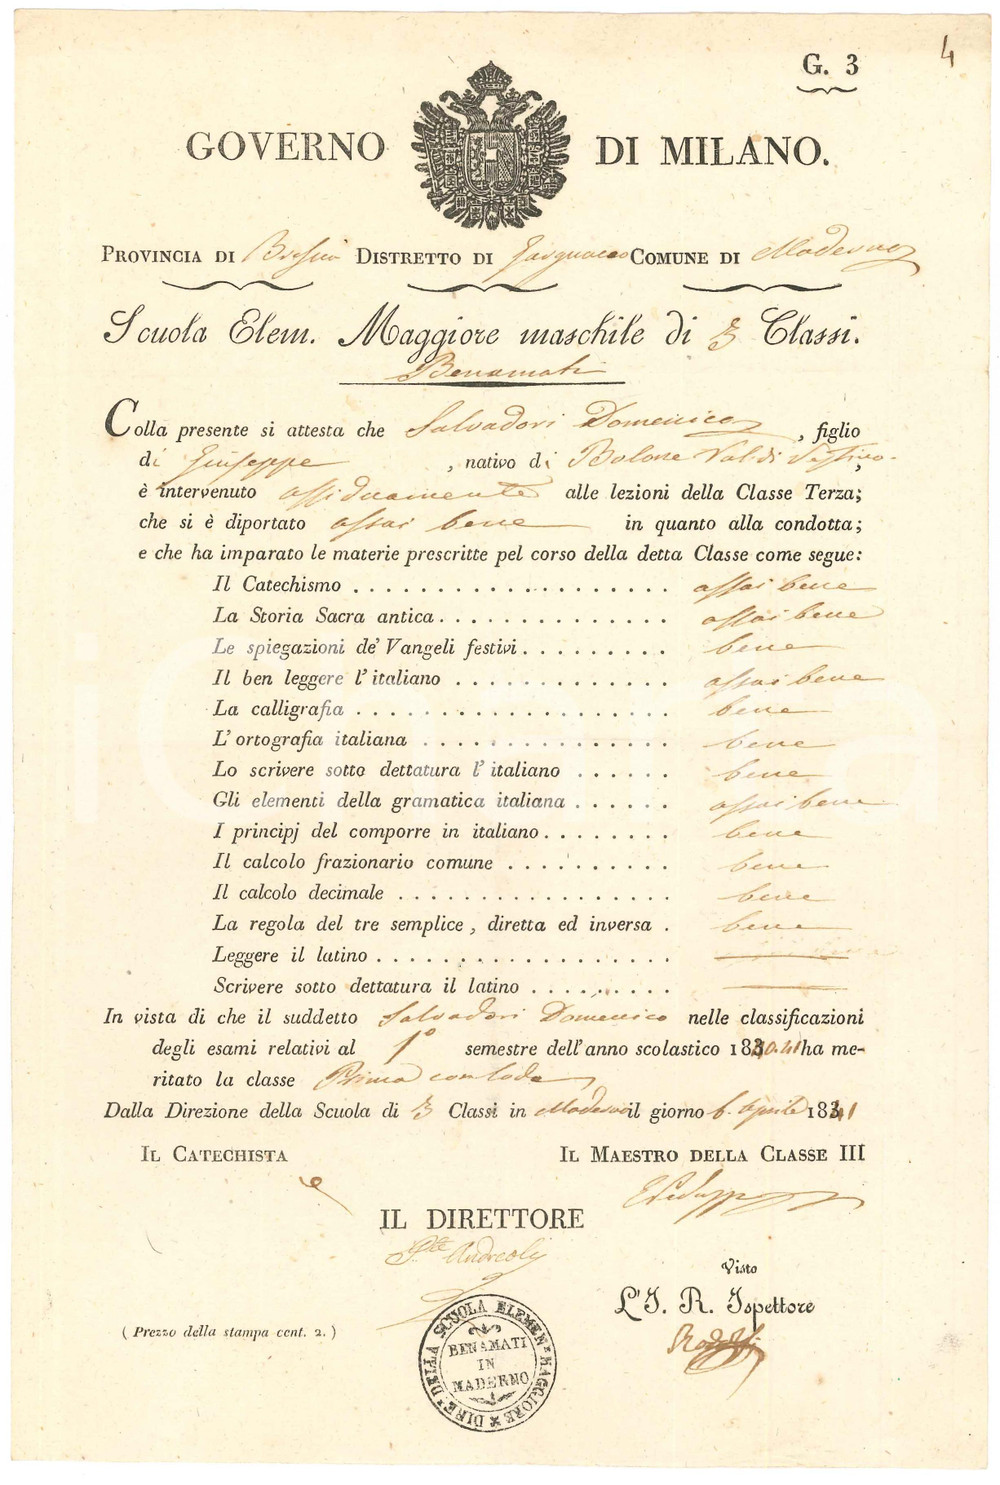 4
G. 3
GOVERNO DI MILANO.
PROVINCIA DI Brescia DISTRETTO DI Gargnano COMUNE DI Maderno
Scuola Elem. Maggiore maschile di 3 Classi.
Benamati
Colla presente si attesta che Salvadori Domenico, figlio
di Giuseppe, nativo di Bolone Val di Vestino
è intervenuto assiduamente alle lezioni della Classe Terza;
che si è diportato assai bene in quanto alla condotta;
e che ha imparato le materie prescritte pel corso della detta Classe come segue:
Il Catechismo . . . . . . . . . . . . . . . . . . . assai bene
La Storia Sacra antica . . . . . . . . . . . . . . assai bene
Le spiegazioni de' Vangeli festivi . . . . . . . . . bene
Il ben leggere l'italiano . . . . . . . . . . . . . assai bene
La calligrafia . . . . . . . . . . . . . . . . . . . bene
L'ortografia italiana . . . . . . . . . . . . . . . bene
Lo scrivere sotto dettatura l'italiano . . . . . . bene
Gli elementi della gramatica italiana . . . . . . assai bene
I principj del comporre in italiano . . . . . . . . bene
Il calcolo frazionario comune . . . . . . . . . . bene
Il calcolo decimale . . . . . . . . . . . . . . . . . bene
La regola del tre semplice, diretta ed inversa . bene
Leggere il latino . . . . . . . . . . . . . . . . . .
Scrivere sotto dettatura il latino . . . . . . . . .
In vista di che il suddetto Salvadori Domenico nelle classificazioni
degli esami relativi al 1° semestre dell'anno scolastico 1840.41 ha me-
ritato la classe Prima con lode
Dalla Direzione della Scuola di 3 Classi in Maderno il giorno 6. aprile 1841
IL CATECHISTA IL MAESTRO DELLA CLASSE III
IL DIRETTORE
Andreoli
Visto
L'I. R. Ispettore
( Prezzo della stampa cent. 2. )
DIRE.E DELLA SCUOLA ELEMEN.E MAGGIORE
BENAMATI
IN
MADERNO